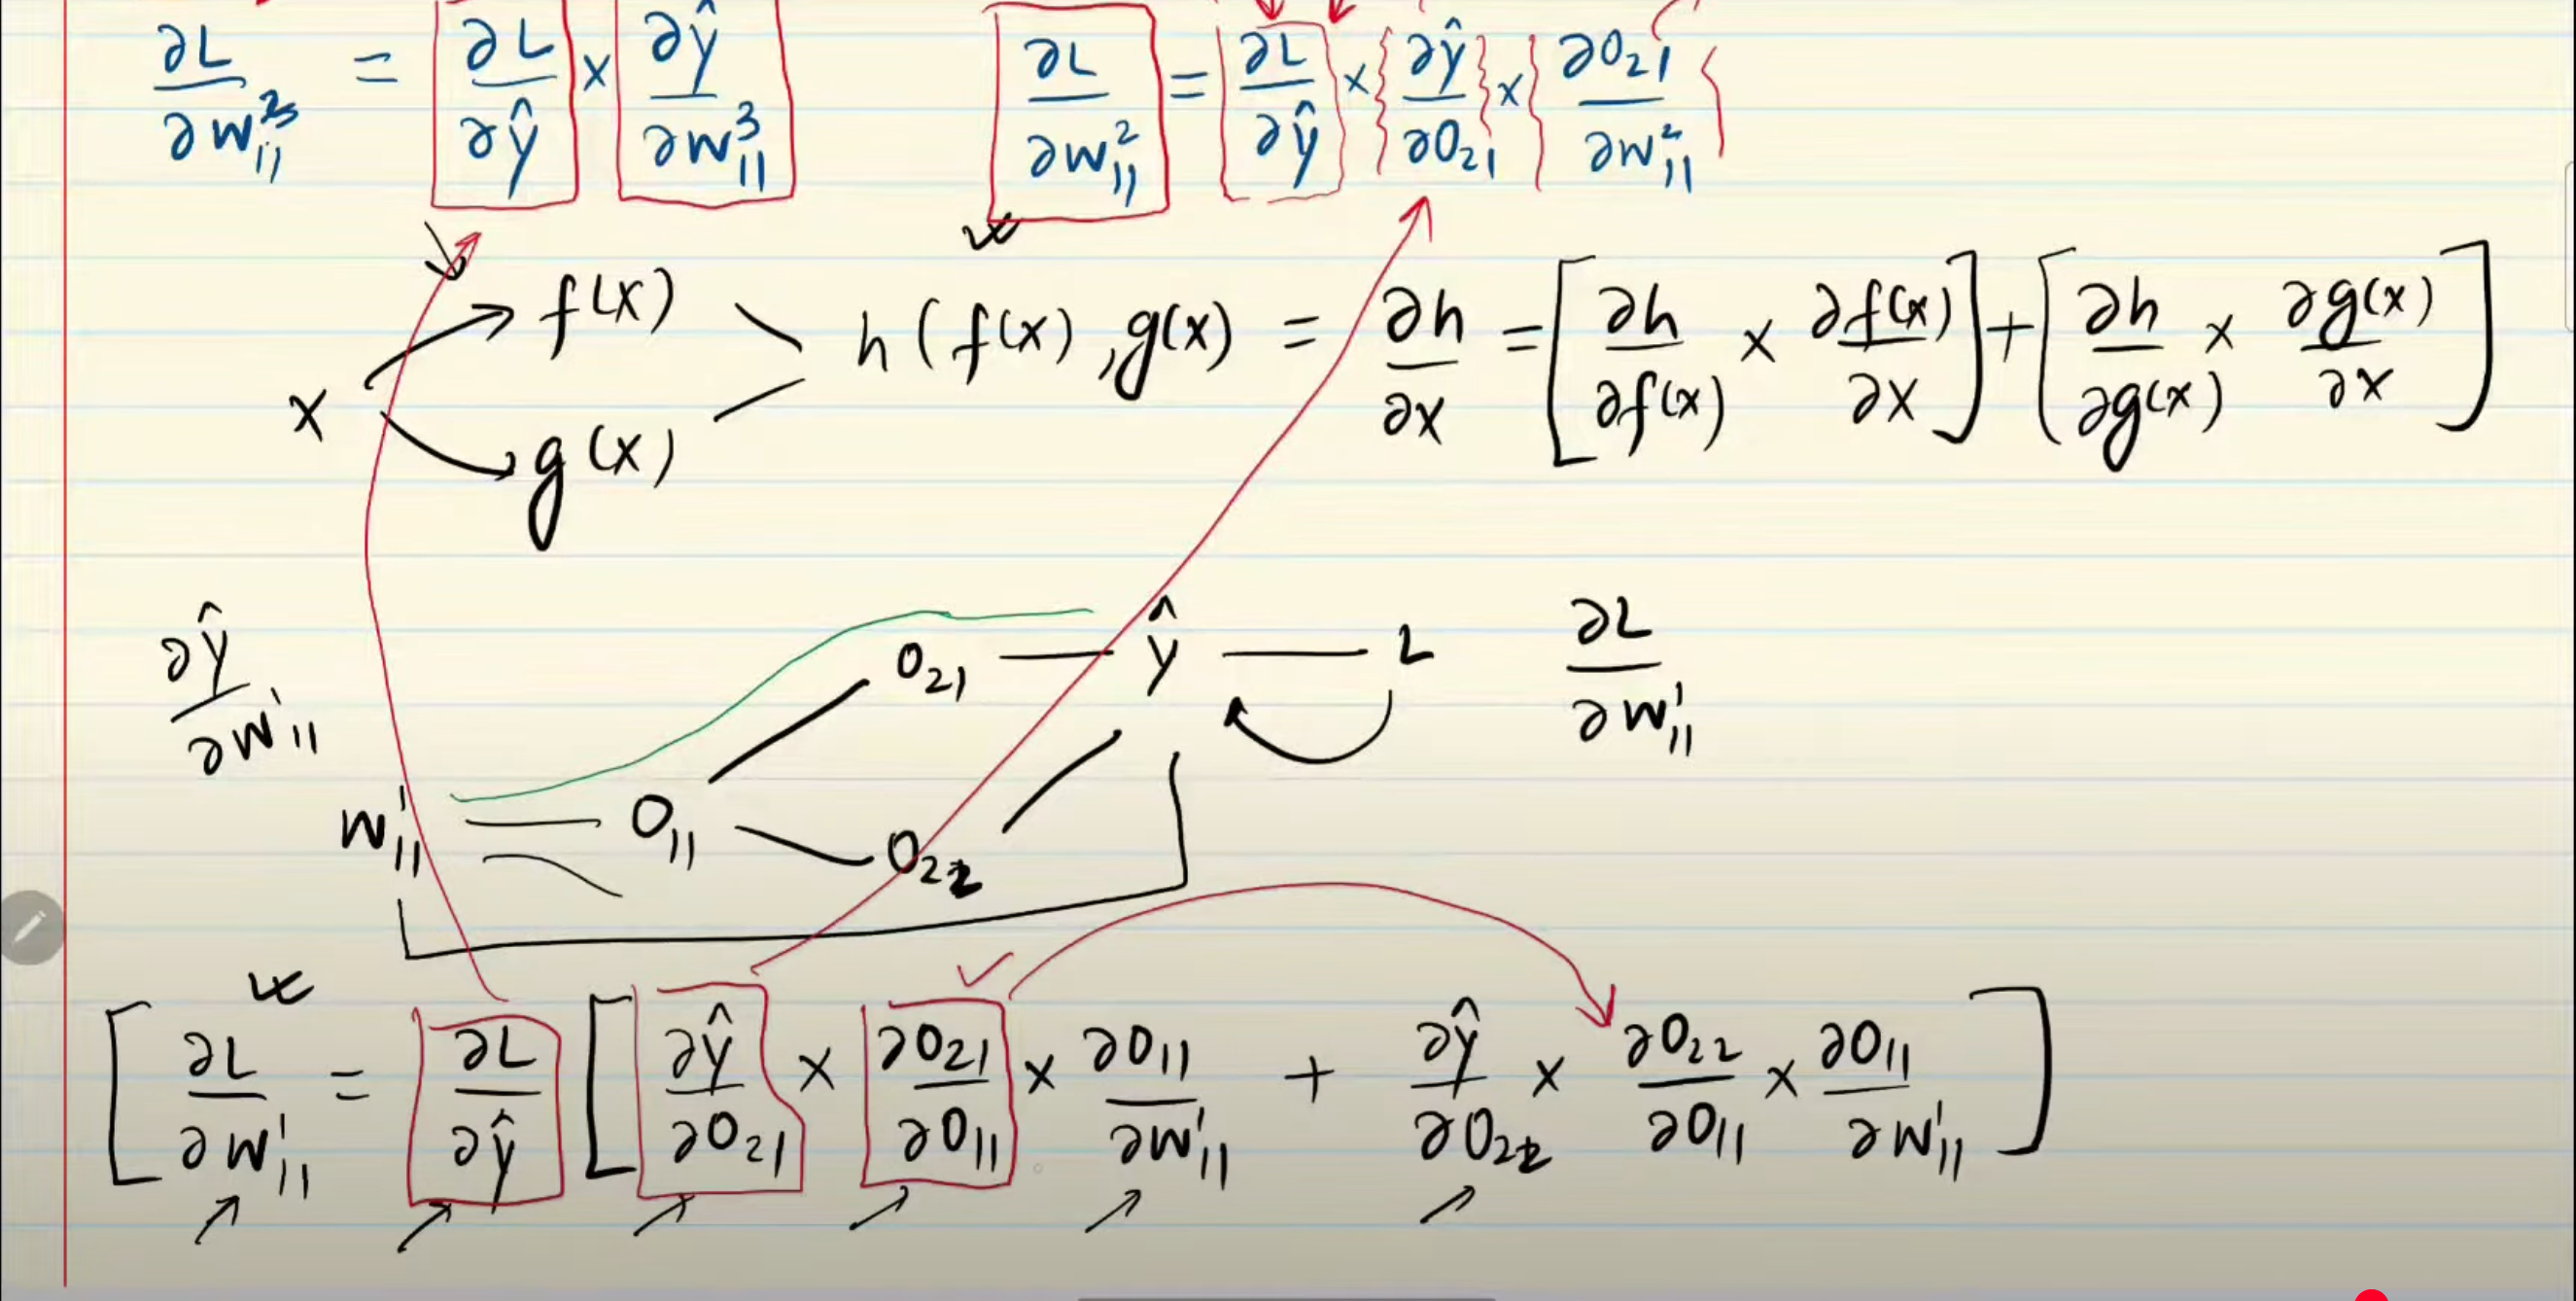 ∂L/∂w³₁₁ = ∂L/∂ŷ × ∂ŷ/∂w³₁₁    ∂L/∂w²₁₁ = ∂L/∂ŷ × ∂ŷ/∂O₂₁ × ∂O₂₁/∂w²₁₁
x → f(x)
x → g(x)
h(f(x), g(x)) = ∂h/∂x = [∂h/∂f(x) × ∂f(x)/∂x] + [∂h/∂g(x) × ∂g(x)/∂x]
∂ŷ/∂w¹₁₁
O₂₁ — ŷ — L    ∂L/∂w¹₁₁
w¹₁₁ — O₁₁ — O₂₂
[∂L/∂w¹₁₁ = ∂L/∂ŷ [∂ŷ/∂O₂₁ × ∂O₂₁/∂O₁₁ × ∂O₁₁/∂w¹₁₁ + ∂ŷ/∂O₂₂ × ∂O₂₂/∂O₁₁ × ∂O₁₁/∂w¹₁₁]